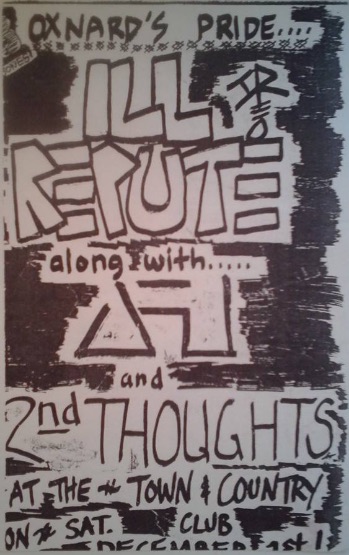 OXNARD'S PRIDE....
ILL
REPUTE
along with.....
and
2nd THOUGHTS
AT THE TOWN & COUNTRY
ON SAT. CLUB
DECEMBER 1st!